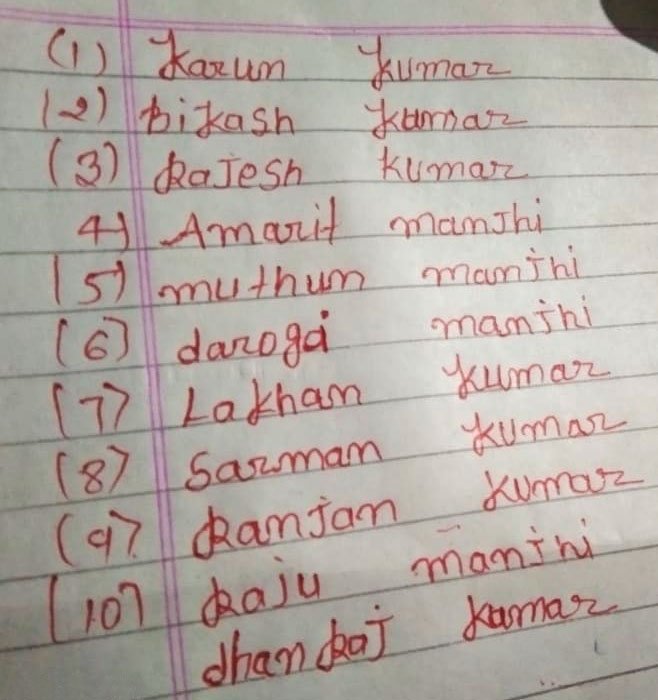 (1) Karun Kumar
(2) Bikash Kumar
(3) Rajesh Kumar
4) Amarit manjhi
(5) muthun manjhi
(6) daroga manjhi
(7) Lakhan Kumar
(8) Sarman Kumar
(9) Ranjan Kumar
(10) Raju manjhi
dhanRaj Kumar